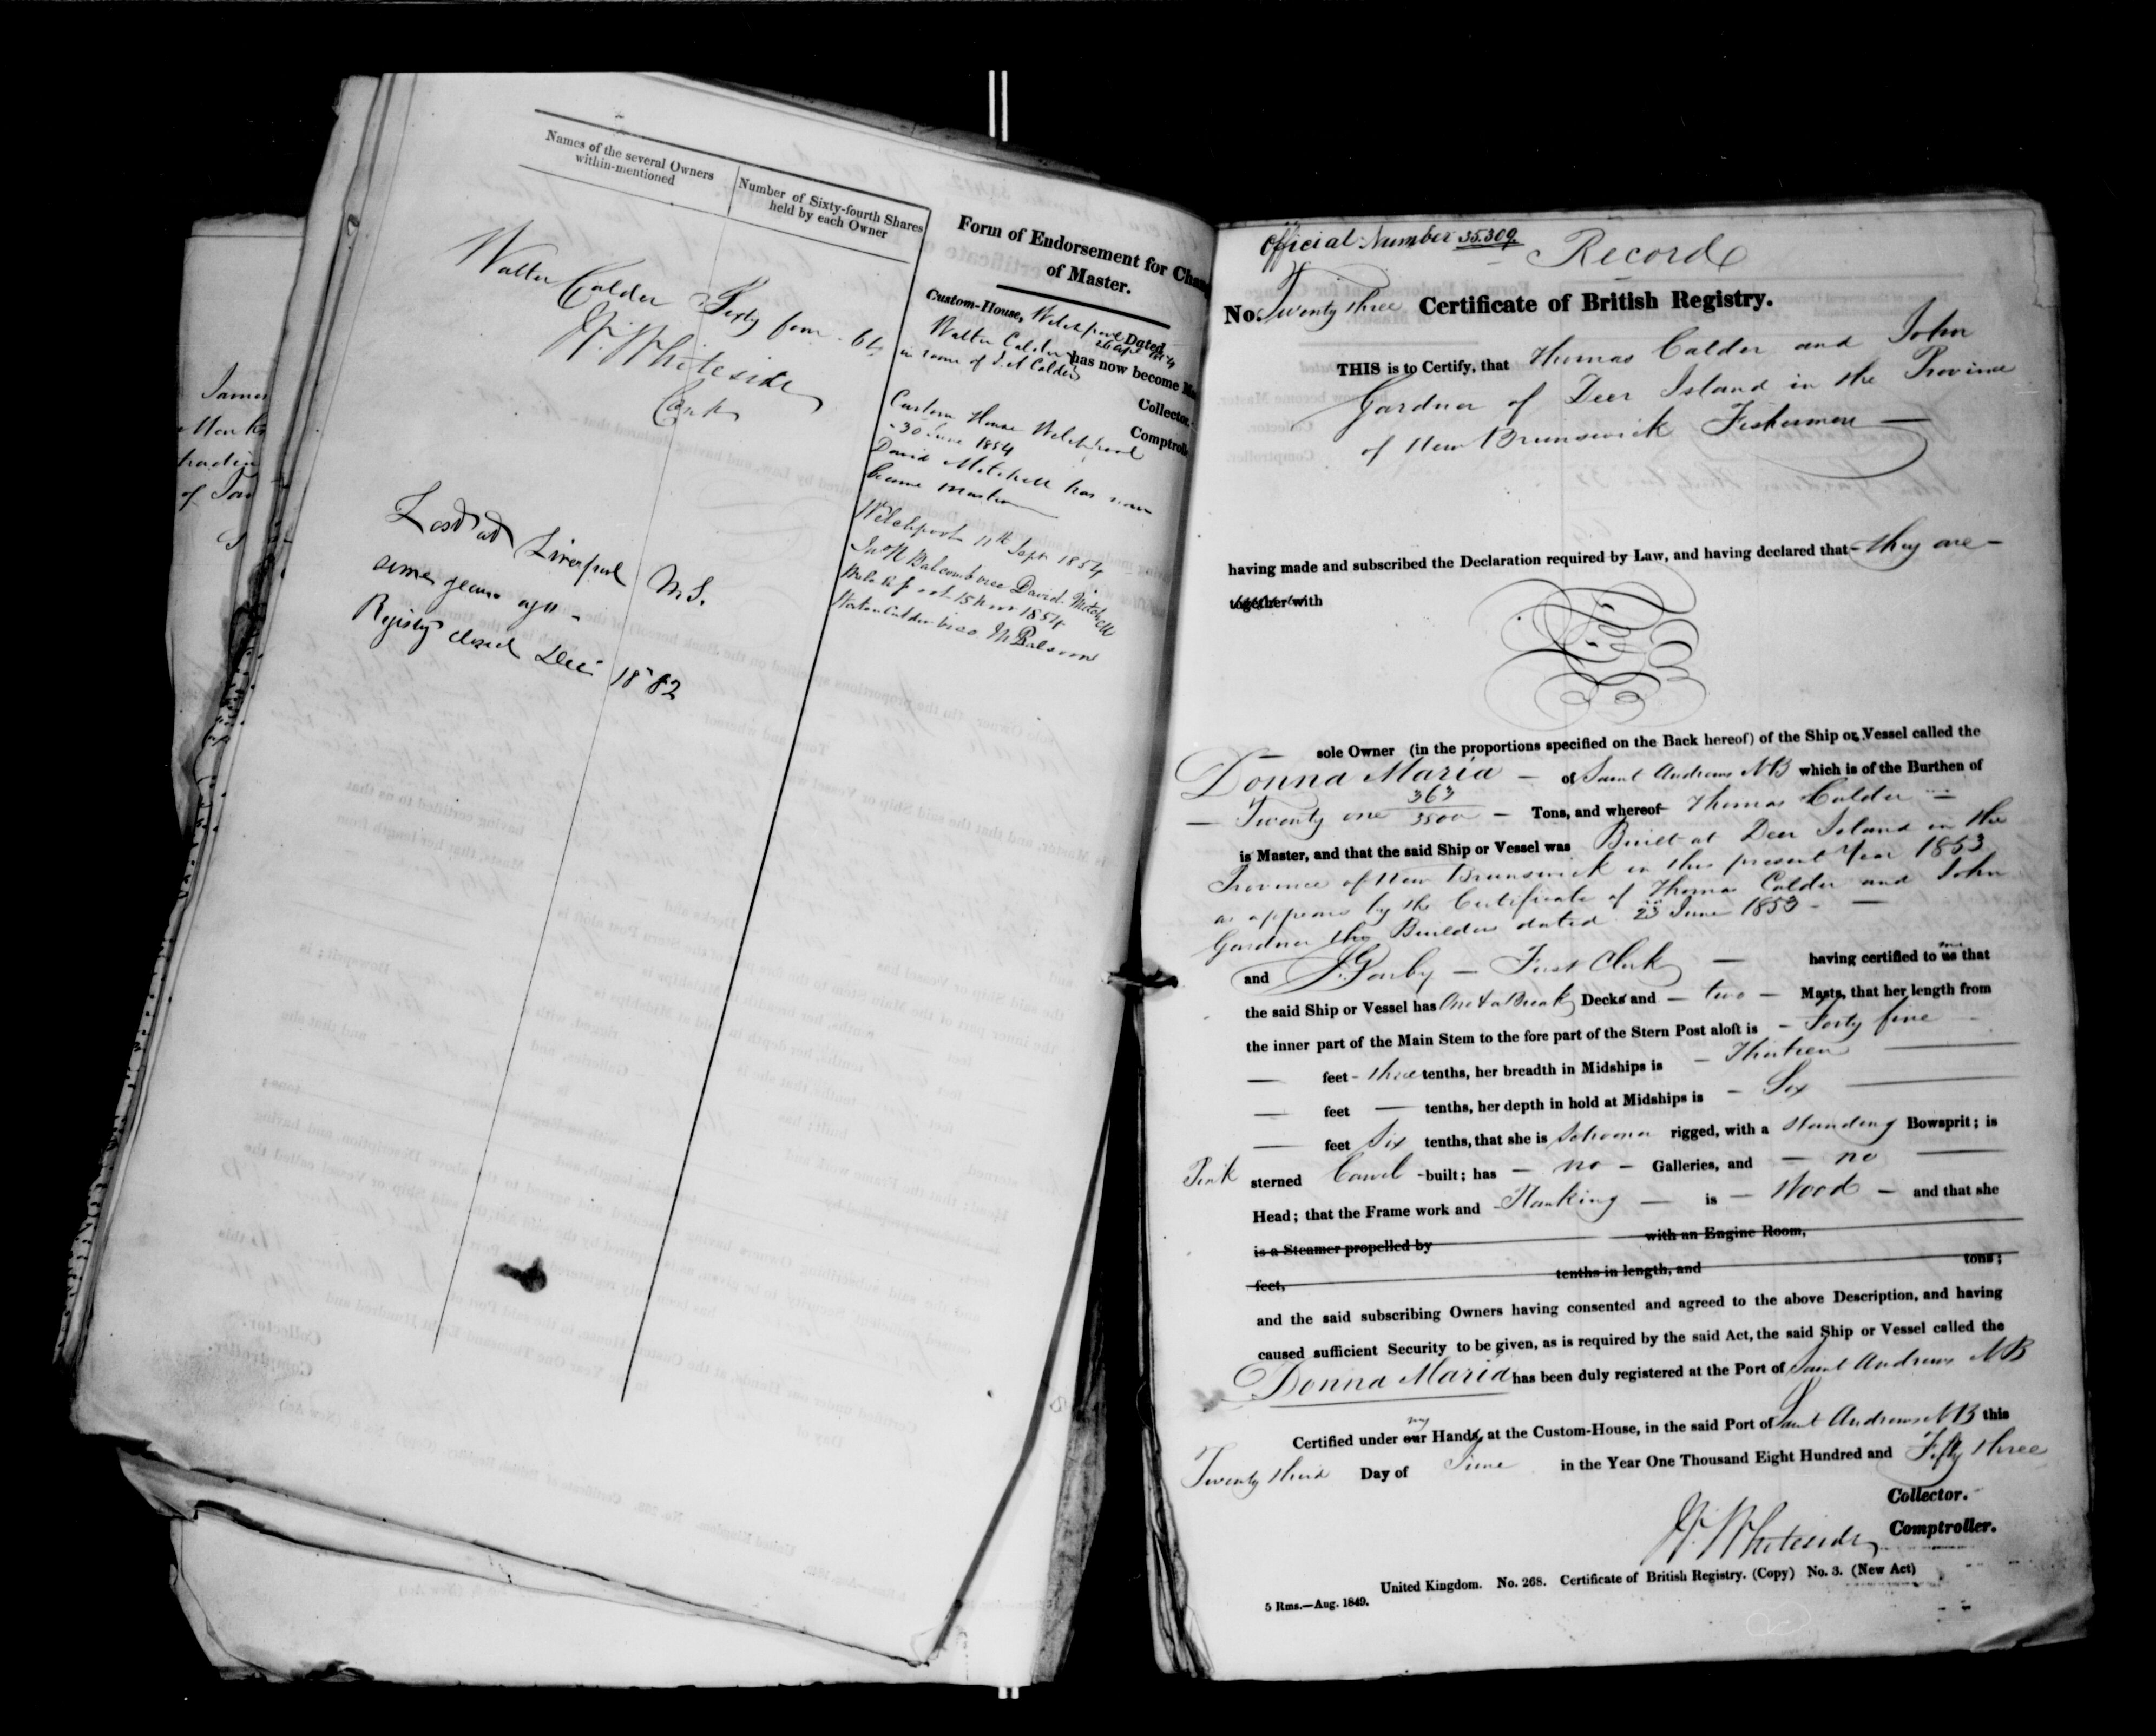 James
Names of the several Owners
within-mentioned
Number of Sixty-fourth Shares
held by each Owner
Walter Calder Sixty four - 64
J. Whiteside
Lost at Liverpool N.S.
some years ago -
Registry closed Decr 1882
Form of Endorsement for Chan
of Master.
Custom-House, Welchpool Dated
26 Apr 1854
Walter Calder has now become
in room of Calder
Collector.
Comptroll
Custom House Welchpool
- 30 June 1854
David Mitchell has now
become master
Welchpool 11th Sept 1854
Jno N Balcomb vice David Mitchell
15 Novr 1854
Walter Calder vice Balcom
Official Number 35.309
Record
No. Twenty three Certificate of British Registry.
THIS is to Certify, that Thomas Calder and John
Gardner of Deer Island in the Province
of New Brunswick Fishermen
having made and subscribed the Declaration required by Law, and having declared that - they are -
together with
sole Owner (in the proportions specified on the Back hereof) of the Ship or Vessel called the
Donna Maria - of Saint Andrews NB which is of the Burthen of
- Twenty one 363/3500 - Tons, and whereof Thomas Calder -
is Master, and that the said Ship or Vessel was Built at Deer Island in the
Province of New Brunswick in this present Year 1853
as appears by the Certificate of Thomas Calder and John
Gardner the Builders dated 23 June 1853 -
and - First Clerk - having certified to us me that
the said Ship or Vessel has One & a Break Decks and - two - Masts, that her length from
the inner part of the Main Stem to the fore part of the Stern Post aloft is - Forty five
feet - three tenths, her breadth in Midships is - Thirteen
feet - tenths, her depth in hold at Midships is - Six
feet Six tenths, that she is Schooner rigged, with a standing Bowsprit; is
Pink sterned Carvel -built; has - no - Galleries, and - no
Head; that the Frame work and - Planking - is - Wood - and that she
is a Steamer propelled by with an Engine Room,
feet, tenths in length, and tons;
and the said subscribing Owners having consented and agreed to the above Description, and having
caused sufficient Security to be given, as is required by the said Act, the said Ship or Vessel called the
Donna Maria has been duly registered at the Port of Saint Andrews NB
Certified under our my Hands, at the Custom-House, in the said Port of Saint Andrews NB this
Twenty third Day of June in the Year One Thousand Eight Hundred and Fifty three
Collector.
J. Whiteside Comptroller.
United Kingdom. No. 268. Certificate of British Registry. (Copy) No. 3. (New Act)
5 Rms.—Aug. 1849.